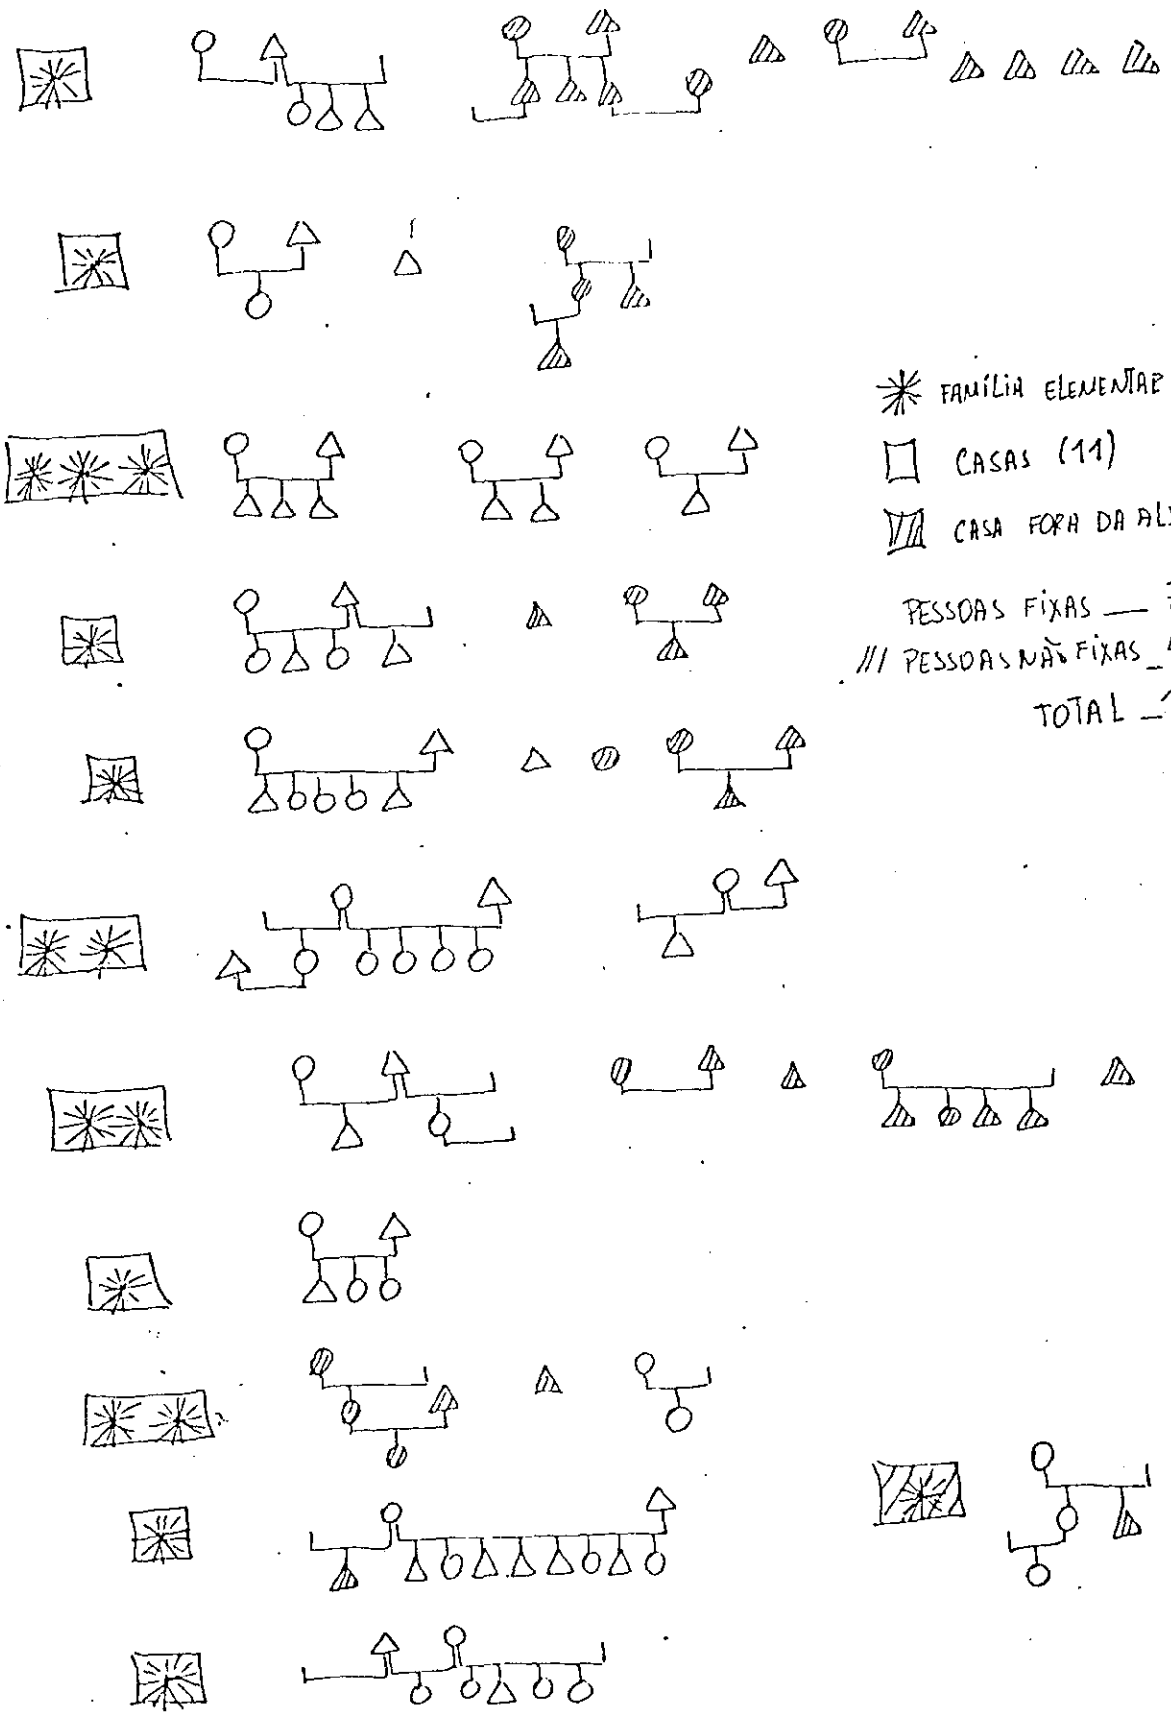 FAMÍLIA ELEMENTAR
CASAS (11)
CASA FORA DA
PESSOAS FIXAS —
/// PESSOAS NÃO FIXAS _
TOTAL _